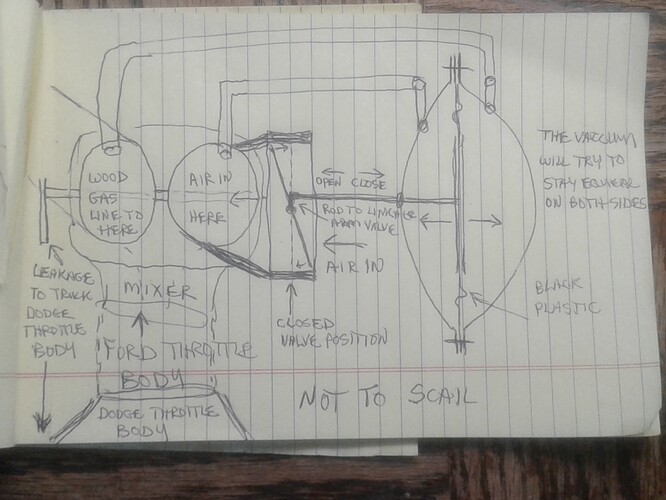 WOOD
GAS
LINE TO
HERE
AIR IN
HERE
OPEN CLOSE
ROD TO
VALVE
AIR IN
CLOSED
VALVE POSITION
THE VACUUM
WILL TRY TO
STAY EQUEAR
ON BOTH SIDES
BLACK
PLASTIC
LEAKAGE
TO TRUCK
DODGE
THROTTLE
BODY
MIXER
FORD THROTTLE
BODY
DODGE THROTTLE
BODY
NOT TO SCAIL